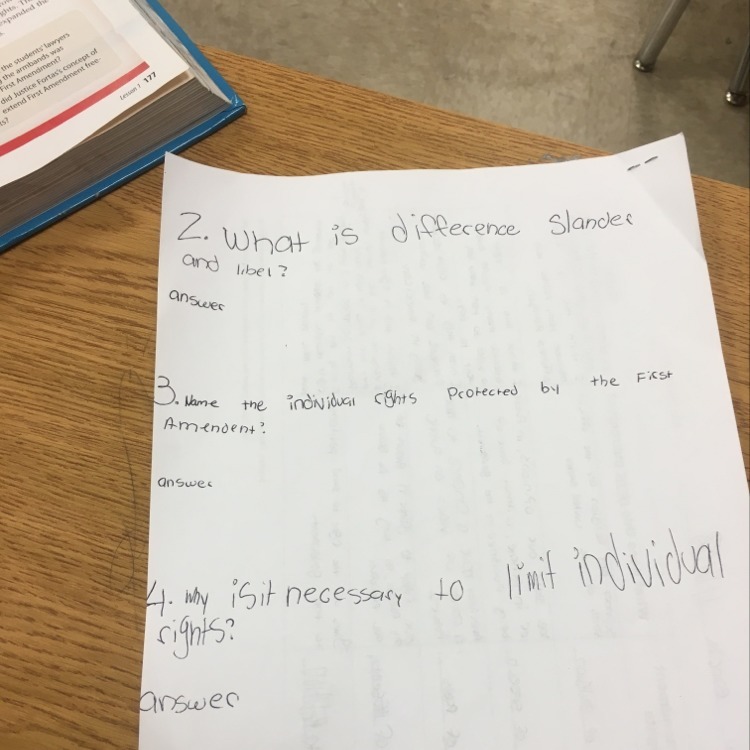 ghts. Th
expanded the
the students' lawyers
the armbands was
First Amendment?
did Justice Fortas's concept of
extend First Amendment free-
ts?
Lesson 1 177
2. What is difference Slander
and libel?
answer
3. Name the individual rghts Protected by the First
Amendent?
answer
4. Why isit necessary to limit individual
rights?
answer